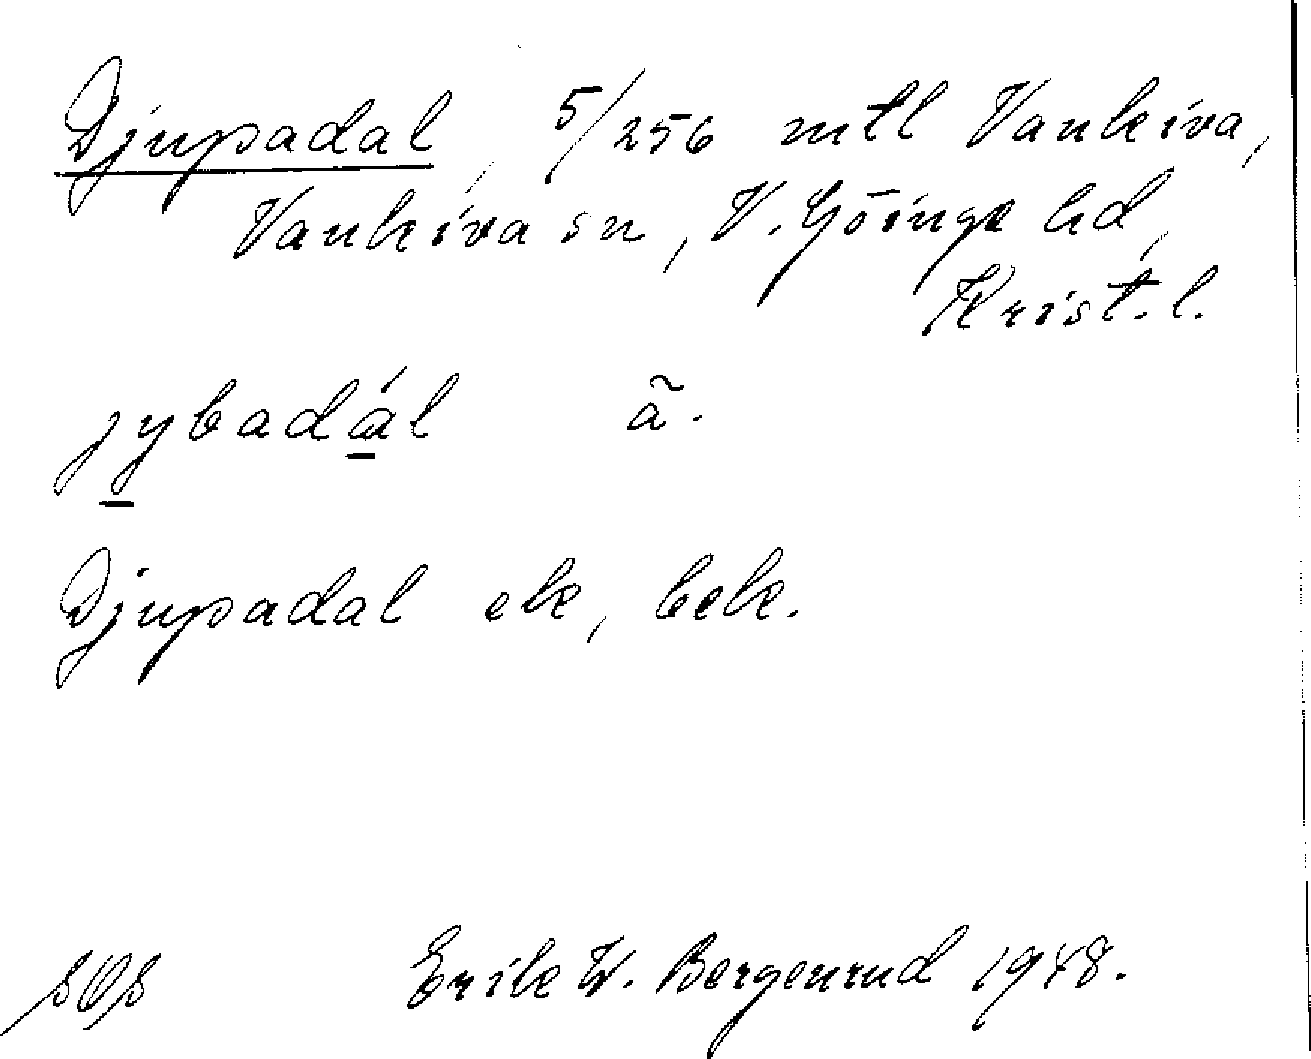 Djupadal, 5/256 mtl Vankiva,
Vankiva sn, V. Göinge hd,
Krist. l.
jybadál ã.
Djupadal ek, bek.
Erik W. Bergenrud 1948.